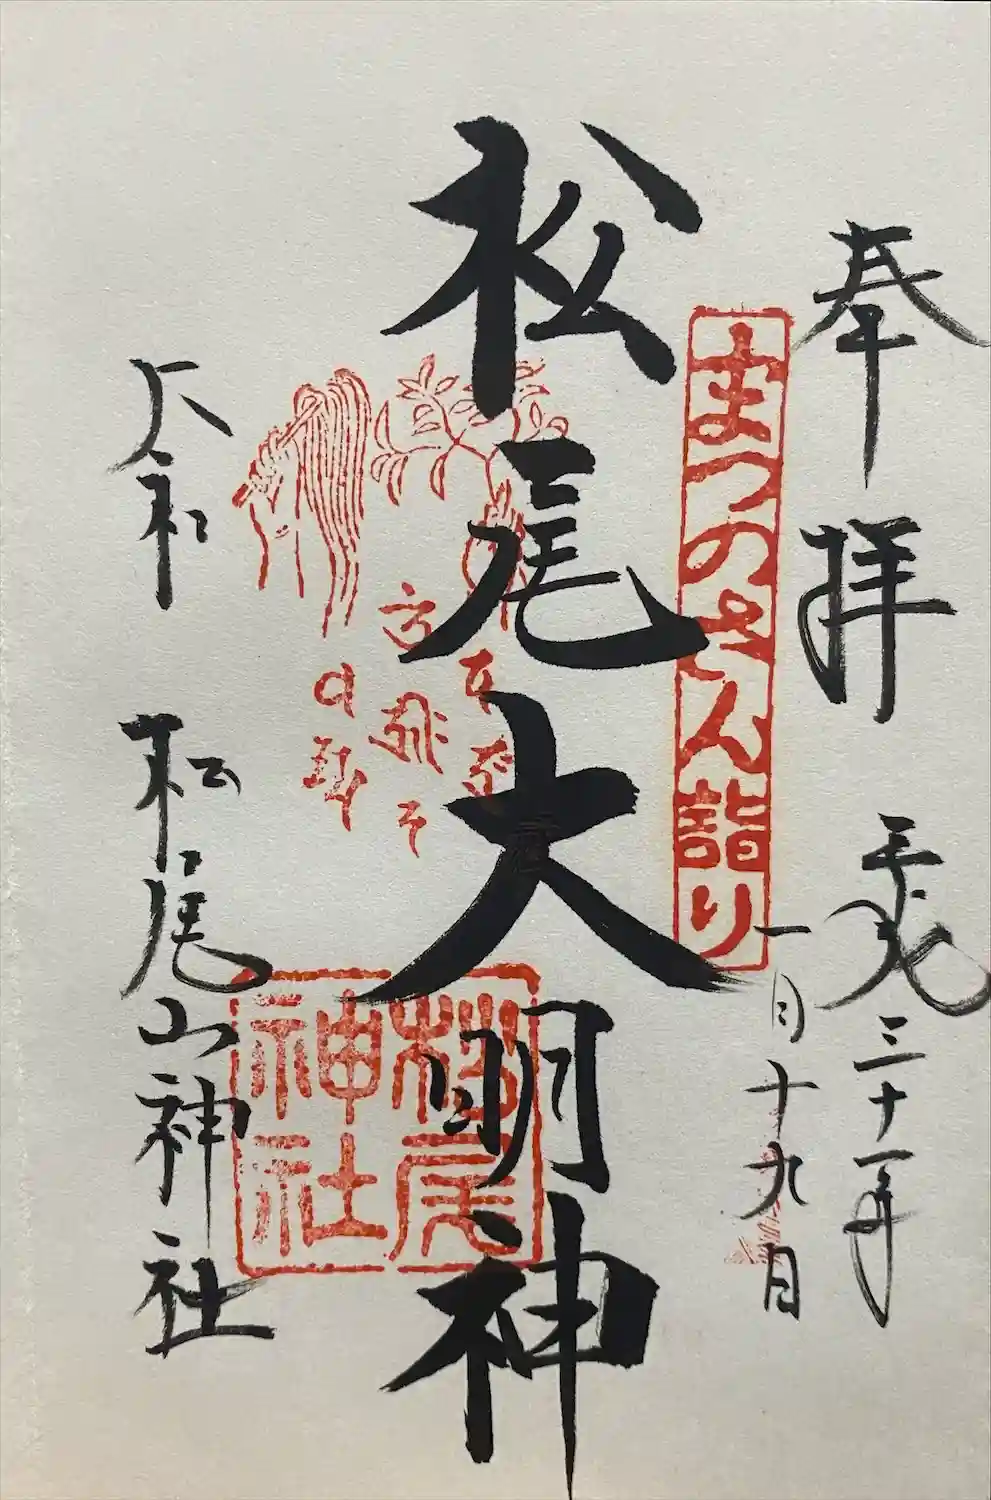 奉拝
平成三十一年
一月十九日
まつのさん詣り
松尾大明神
松尾神社
大和
松尾山神社